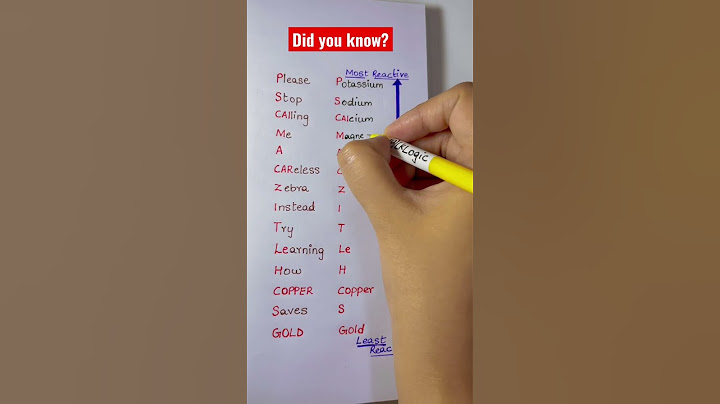 Did you know?
Most Reactive
Please Potassium
Stop Sodium
CALling CALcium
Me Magne
A
CAReless C
Zebra Z
Instead I
Try T
Learning Le
How H
COPPER Copper
Saves S
GOLD Gold
Least
Reac